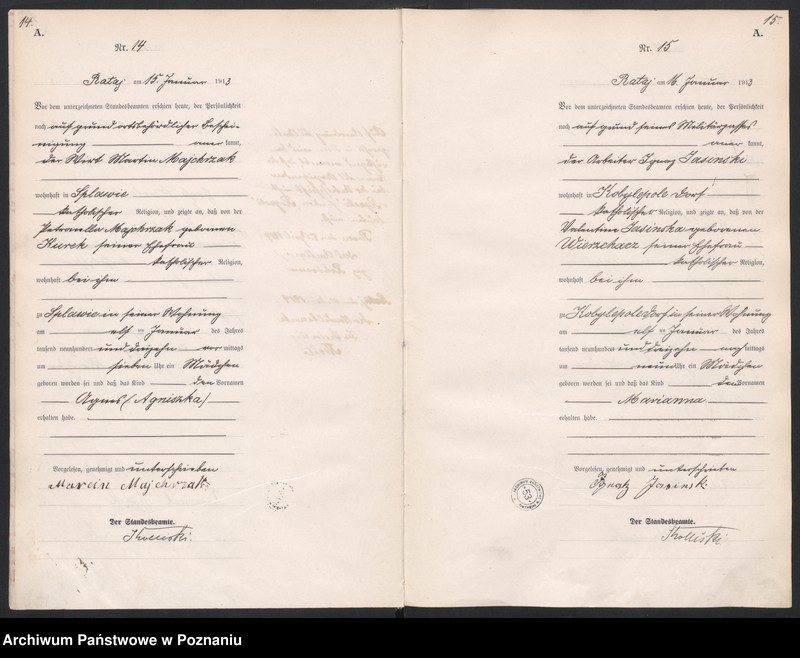 14.
A.
Nr. 14
Rataj am 15. Januar 1913
Vor dem unterzeichneten Standesbeamten erschien heute, der Persönlichkeit
nach auf grund ortsbehördlicher Beschei-
nigung aner kannt,
der Wirt Martin Majchrzak
wohnhaft in Splawie
katholischer Religion, und zeigte an, daß von der
Petronella Majchrzak geborenen
Kurek seiner Ehefrau
katholischer Religion,
wohnhaft bei ihm
zu Splawie in seiner Wohnung
am elf ten Januar des Jahres
tausend neunhundert und dreizehn vor mittags
um sieben Uhr ein Mädchen
geboren worden sei und daß das Kind den Vornamen
Agnes (Agniszka)
erhalten habe.
Vorgelesen, genehmigt und unterschrieben
Marcin Majchrzak
Der Standesbeamte.
15.
A.
Nr. 15
Rataj am 16. Januar 1913
Vor dem unterzeichneten Standesbeamten erschien heute, der Persönlichkeit
nach auf grund seines Militärpasses
aner kannt,
der Arbeiter Ignaz Jasinski
wohnhaft in Kobylepole Dorf
katholischer Religion, und zeigte an, daß von der
Valentina Jasinska geborenen
Wierzchacz seiner Ehefrau
katholischer Religion,
wohnhaft bei ihm
zu Kobylepole Dorf in seiner Wohnung
am elf ten Januar des Jahres
tausend neunhundert und dreizehn nach mittags
um neun Uhr ein Mädchen
geboren worden sei und daß das Kind den Vornamen
Marianna
erhalten habe.
Vorgelesen, genehmigt und unterschrieben
Ignatz Jasinski
53
Der Standesbeamte.
Archiwum Państwowe w Poznaniu